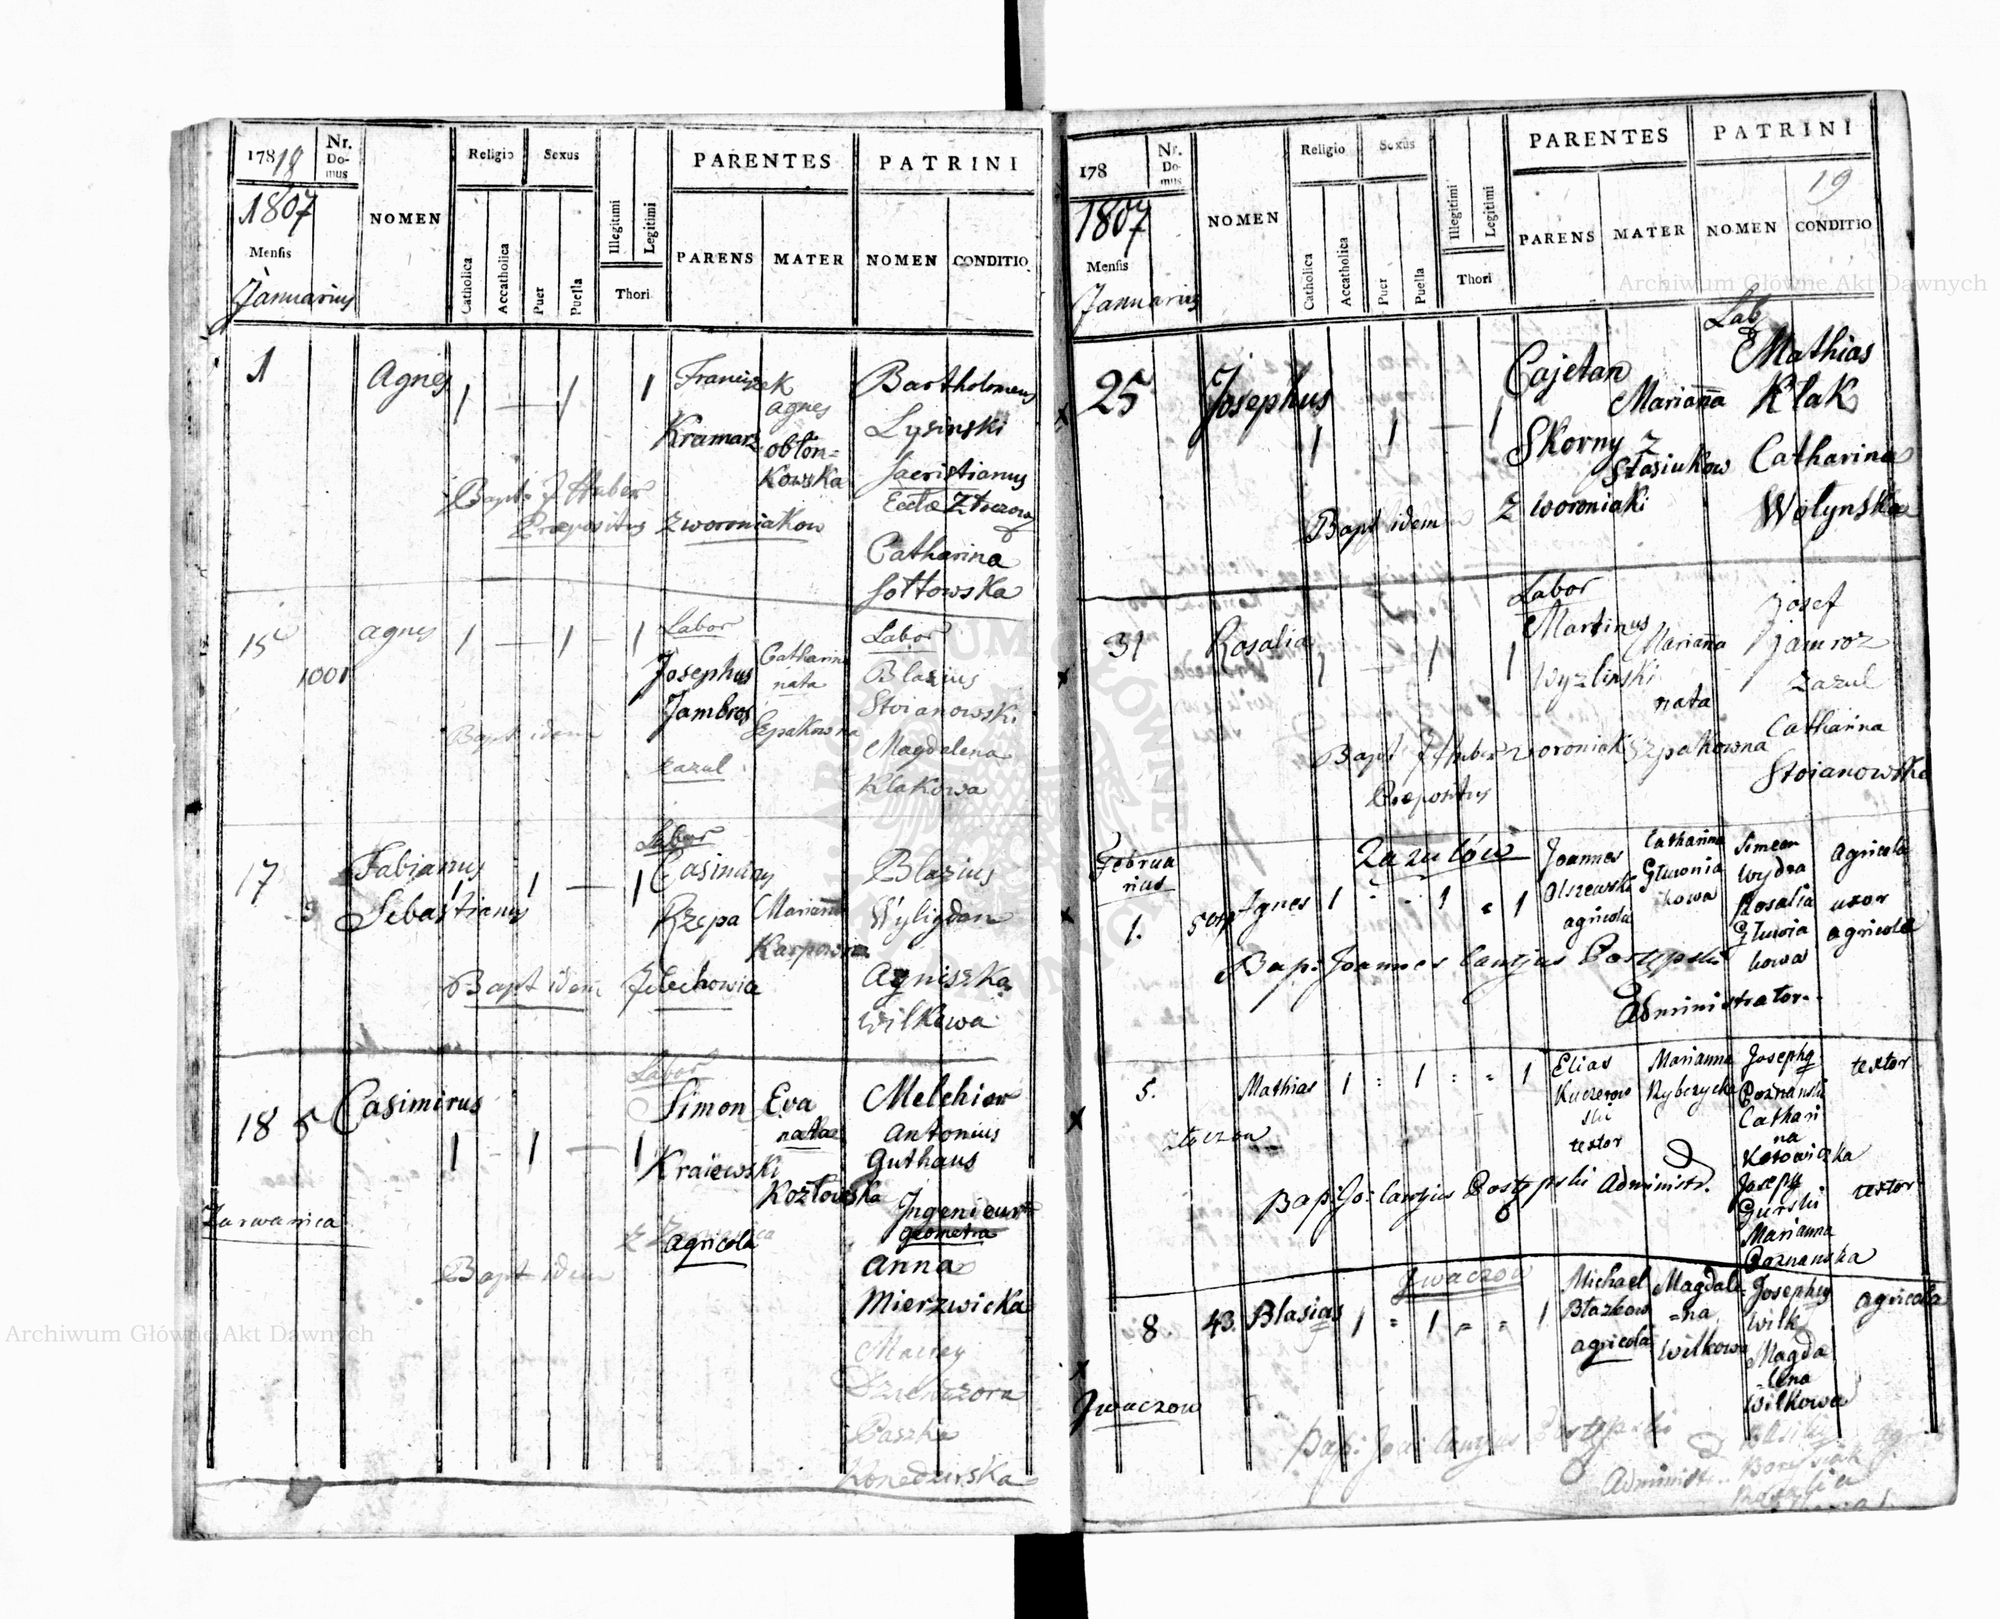 178 18
Nr. Do-mus
NOMEN
Religio
Sexus
Illegitumi
Legitimi
PARENTES
PATRINI
1807
Mensis
Januarius
Catholica
Accatholica
Puer
Puella
Thori
PARENS
MATER
NOMEN
CONDITIO
1 Agnes 1 — 1 1
Franciszek
Kramarz
agnes
obłon=
Kowska
z woroniakow
Bartholomeus
Lysinski
Catharina
Sołtowska
Bapt. J Huber
Præpositus
15 1001 agnes 1 — 1 — 1
Labor
Josephus
Jambros
zazul
Catharina
nata
Labor
Blasius
Stoianowski
Magdalena
Klakowa
Bapt idem
17 Fabianus
Sebastianus 1 1 — 1
Labor
Rzepa
Marianna
Karpowna
Blazius
Agniszka
Wilkowa
Bapt idem
18 5 Casimirus 1 - 1 — 1
Zarwanica
Labor
Simon
Kraiewski
agricola
Eva
nata
Kozłowska
Melchior
Antonius
Guthaus
Ingenieur
geometra
Anna
Mierzwicka
Maciey
Paszka
Bapt idem
178
Nr. Do-mus
NOMEN
Religio
Sexus
Illegitimi
Legitimi
PARENTES
PATRINI
19
1807
Mensis
Januarius
Catholica
Accatholica
Puer
Puella
Thori
PARENS
MATER
NOMEN
CONDITIO
25 Josephus 1 1 — 1
Cajetan
Skorny
z woroniaki
Marianna
z Stasiukow
Lab
Mathias
Klak
Catharina
Wolynska
Bapt idem
31 Rosalia 1 — 1 1
Labor
Martinus
Wyzlinski
Marianna
nata
Szpakowna
Josef
Jamroz
zazul
Catharina
Stoianowska
Bapt J Huber
Præpositus
Februa
rius
Zazulów
1. Agnes 1 - - 1 = 1
Joannes
Olszewski
agricola
Catharina
Głuwnia
kowa
Simeon
Wydra
Rosalia
Głuwia
kowa
agricola
uxor
agricola
Bap: Joannes Cantius Postępski
Administrator.
5. Mathias 1 = 1 = = 1
Elias
Kuczerow
ski
textor
Marianna
Rybczycka
Poznanski
Cathari
na
textor
Gurski
Marianna
Poznanska
textor
Bap: Jo: Cantius Postępski Administr.
Jwaczow
8 43. Blasius 1 = 1 = = 1
Michael
Błazkow
agricola
Magdale
=na
Wilkowa
Josephus
Wilk
Magda
lena
Wilkowa
agricola
Jwaczow
Bap: Joa: Cantius Postępski
Administr.
Archiwum Główne Akt Dawnych
Archiwum Główne Akt Dawnych